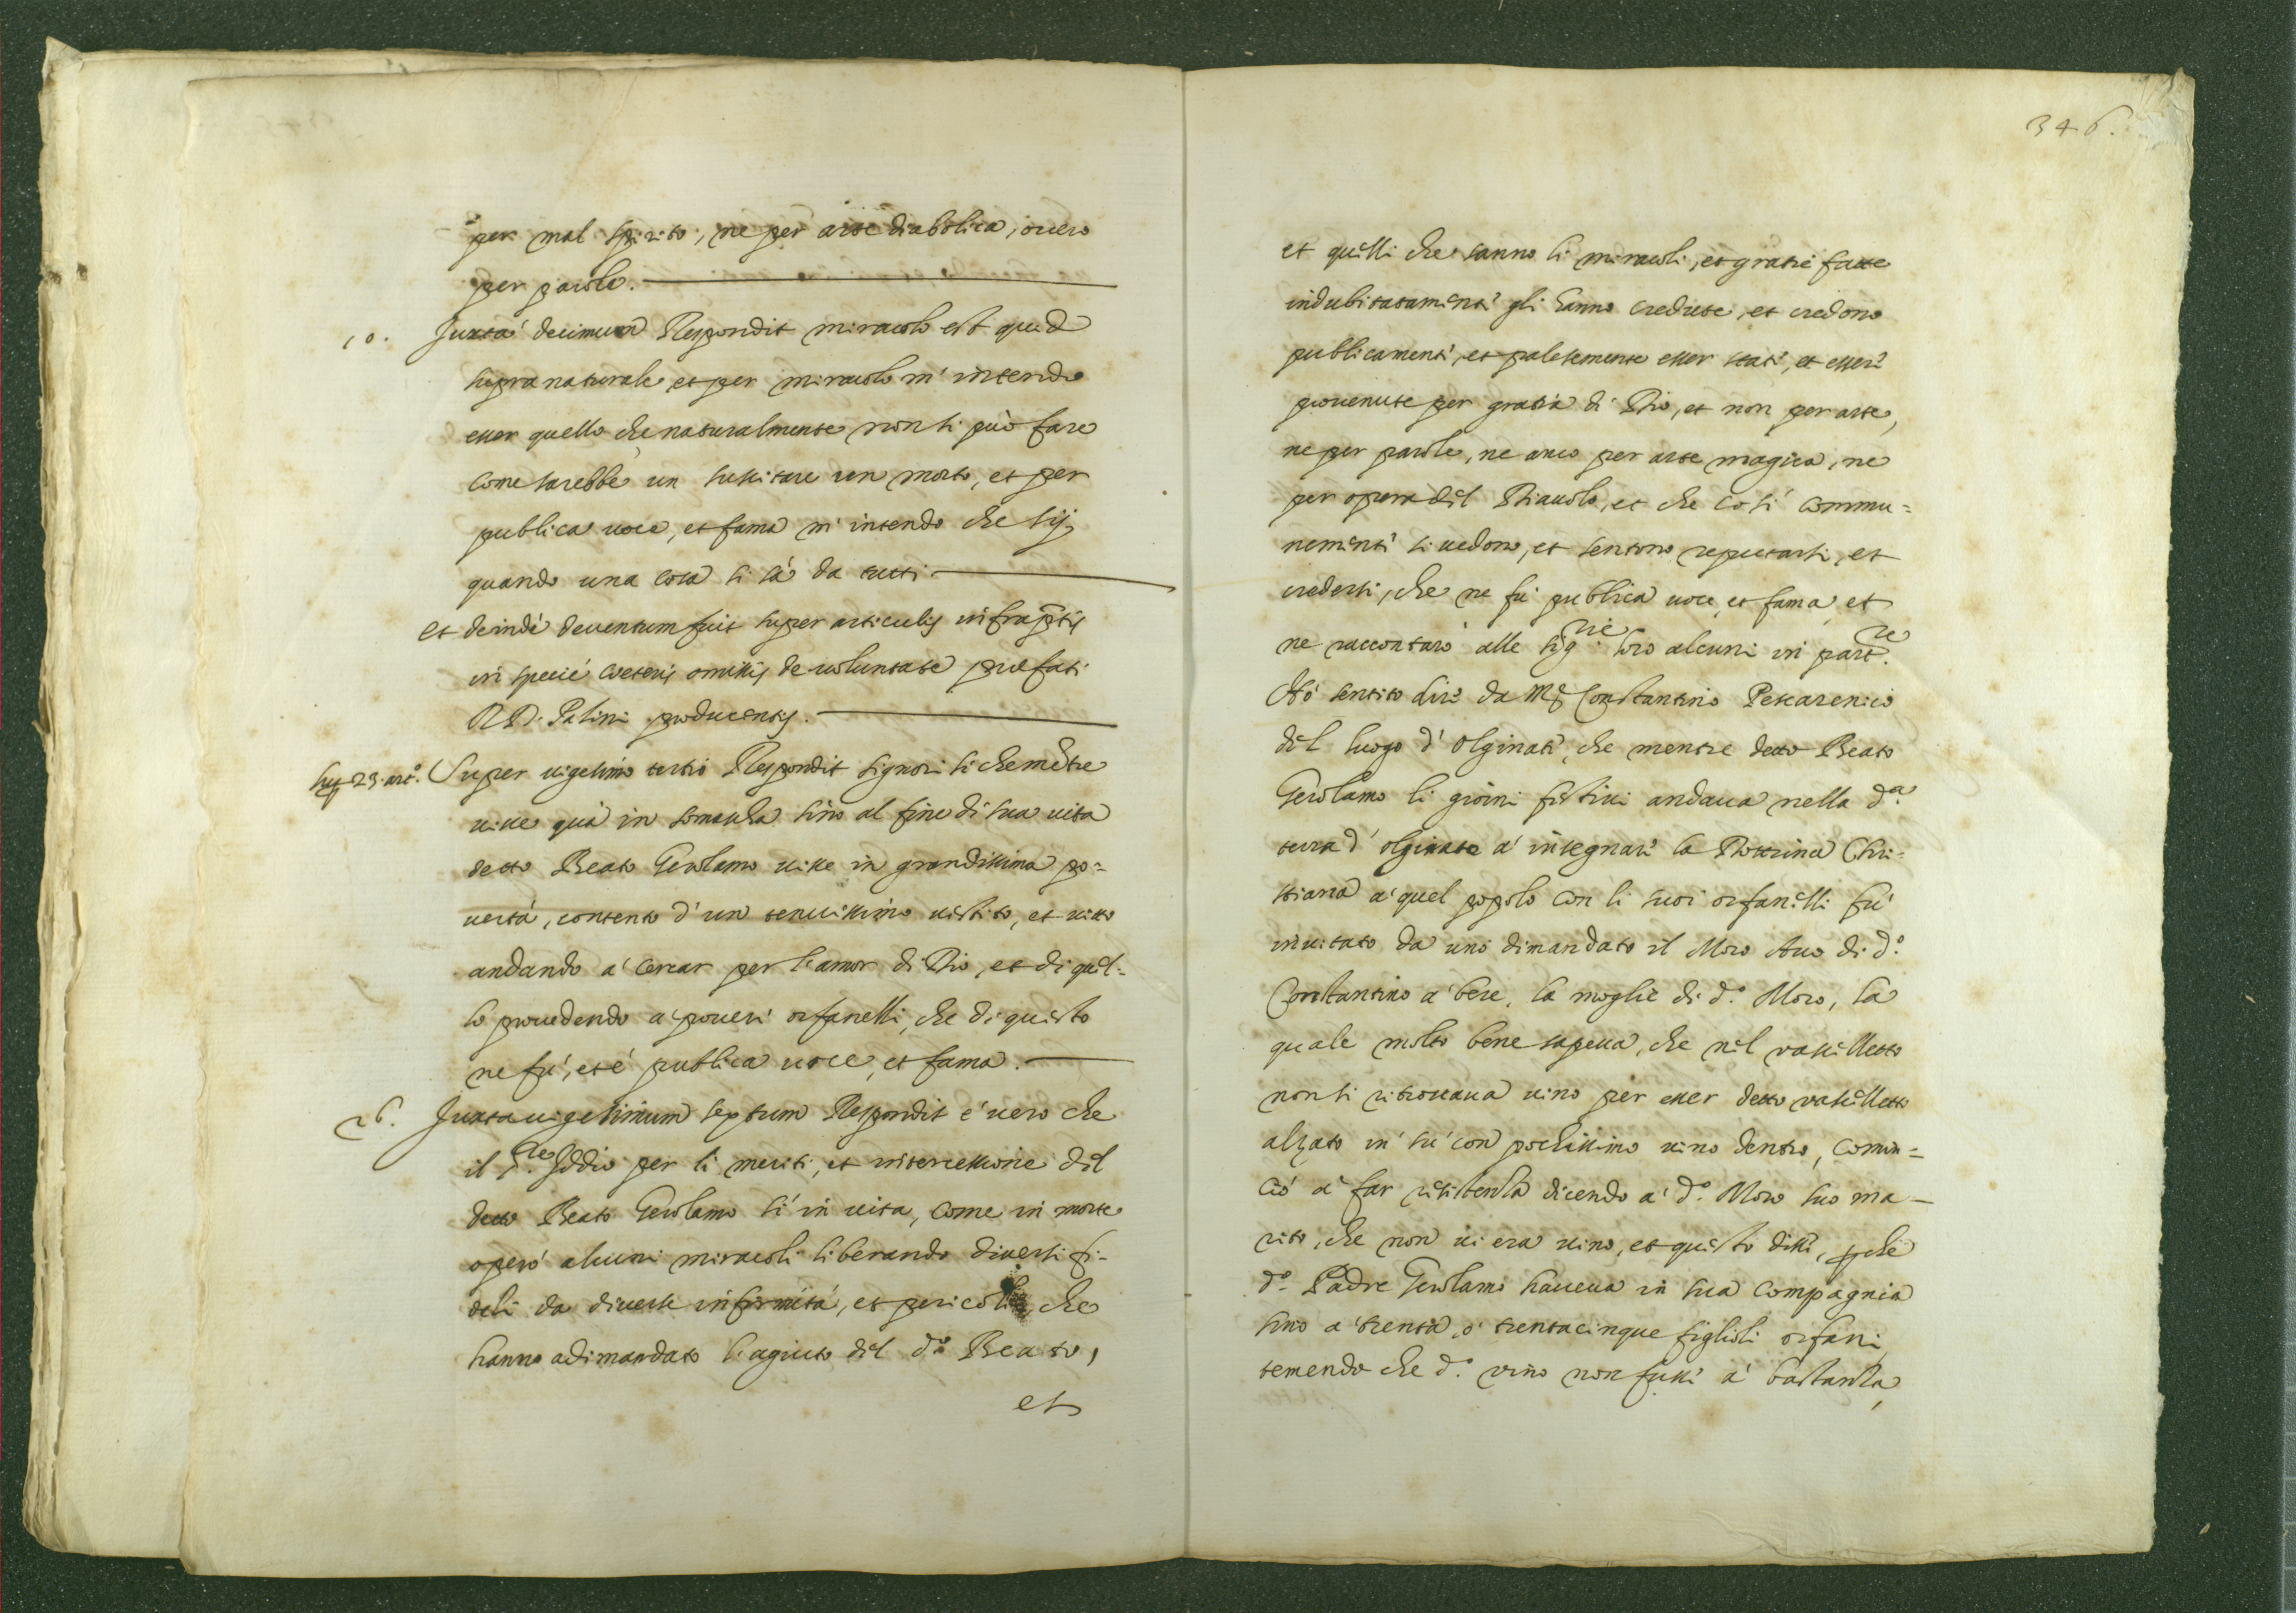 per mal spirito, ne per arte diabolica, overo
per parole.
10. Juxta decimum Respondit miracolo est quid
supra naturale et per miracolo m' intendo
esser quello che naturalmente non si può fare
come sarebbe un sussitare un morto, et per
publica voce, et fama m' intendo che sij
quando una cosa si sà da tutti
Et deindè deventum fuit super articulis infraptis
in specie ceteris omissis de voluntate præfati
R D. Palini producentis.
sup 23. art.o Super vigesimo tertio Respondit signori si che mentre
visse quà in somascha sino al fine di sua vita
detto Beato Gerolamo visse in grandissima po=
vertà, contento d' un tenuissimo vestito, et vitto
andando à cercar per l'amor di Dio, et di quel=
lo provedendo à poveri orfanelli, che di questo
ne fù, et è publica voce, et fama.
26. Juxta vigesimum sextum Respondit è vero che
il S.re Iddio per li meriti, et intercessione del
detto Beato Gerolamo sì in vita, come in morte
operò alcuni miracoli liberando diversi fi=
deli da diverse infirmità, et pericoli, che
hanno adimandato l'agiuto del d.o Beato,
et
346.
et quelli che sanno li miracoli, et gratie fatte
indubitatamente gli hanno credute, et credono
publicamente, et palesemente esser state, et esser
provenute per gratia di Dio, et non per arte,
ne per parole, ne anco per arte magica, ne
per opera del Diavolo, et che così commu=
nemente si vedono, et sentono reputarsi, et
credersi, che ne fù publica voce, et fama, et
ne raccontarò alle sig.rie loro alcuni in part.re
Hò sentito dire da M.r Constantino Pescarenico
del luogo d' Olginate, che mentre detto Beato
Gerolamo li giorni festivi andava nella d.a
terra d' olginate à insegnare la Dottrina Chri=
stiana à quel popolo con li suoi orfanelli fù
invitato da uno dimandato il Moro Avo di d.o
Constantino à bere, la moglie di d.o Moro, la
quale molto bene sapeva, che nel vasselletto
non si ritrovava vino per esser detto vasselletto
alzato in sù con pochissimo vino dentro, comin=
ciò à far resistenza dicendo à d.o Moro suo ma=
rito, che non vi era vino, et questo disse, pche
d.o Padre Gerolamo haveva in sua compagnia
sino à trenta, ò trentacinque figlioli orfani
temendo che d.o vino non fusse à bastanza,